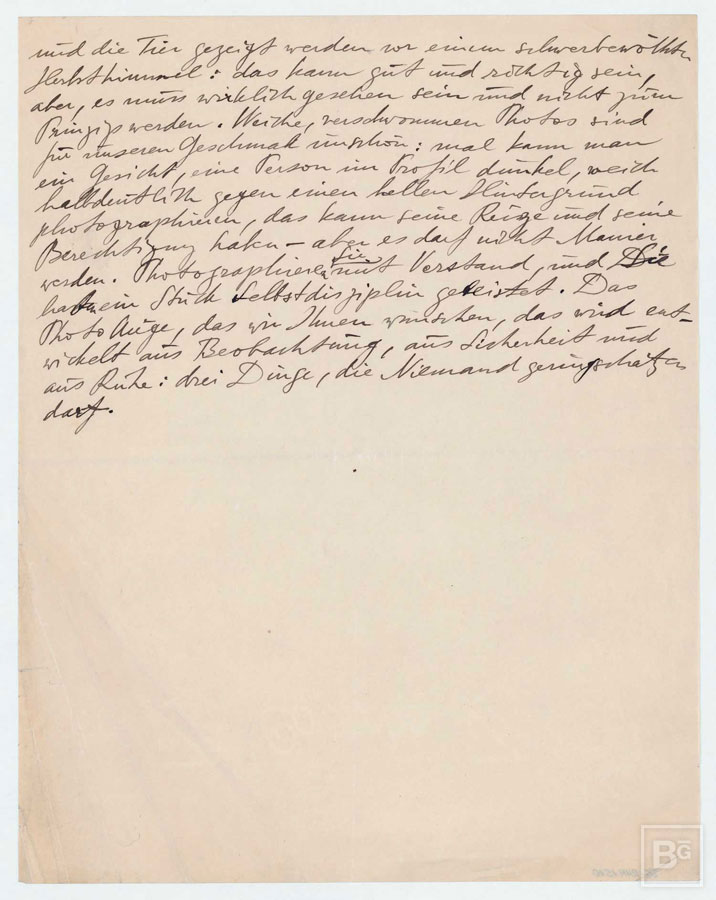 und die Tier gezeigt werden vor einem schwerbewölkten
Herbsthimmel: das kann gut und richtig sein,
aber, es muss wirklich gesehen sein und nicht zum
Prinzip werden. Weiche, verschwommen Photos sind
für unseren Geschmak unschön: mal kann man
ein Gesicht, eine Person im Profil dunkel, weich
halbdeutlich gegen einen hellen Hintergrund
photographieren, das kann seine Reize und seine
Berechtigung haben – aber es darf nicht Manier
werden. Photographieren Sie mit Verstand, und Sie
haben ein Stück Selbstdisziplin geleistet. Das
Photo Auge, das wir Ihnen wünschen, das wird ent-
wickelt aus Beobachtung, aus Sicherheit und
aus Ruhe: drei Dinge, die Niemand geringschätzen
darf.
BG